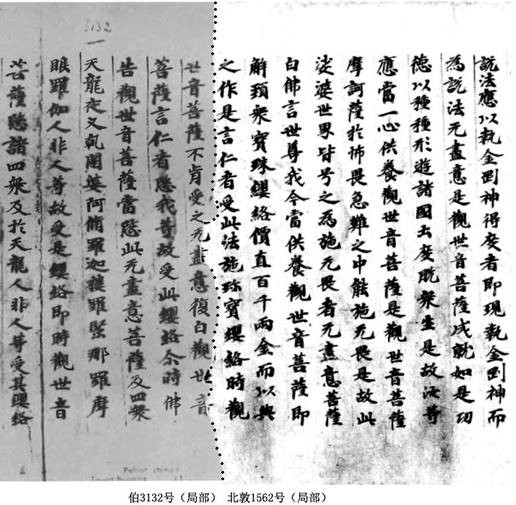 説法應以執金剛神得度者即現執金剛神而
為説法无盡意是觀世音菩薩成就如是功
德以種種形遊諸國土度脱衆生是故汝等
應當一心供養觀世音菩薩是觀世音菩薩
摩訶薩於怖畏急難之中能施无畏是故此
娑婆世界皆号之為施无畏者无盡意菩薩
白佛言世尊我今當供養觀世音菩薩即
解頸衆寶珠纓絡價直百千兩金而以與
之作是言仁者受此法施珎寶纓絡時觀
世音菩薩不肯受之无盡意復白觀世音
菩薩言仁者愍我等故受此纓絡尒時佛
告觀世音菩薩當愍此无盡意菩薩及四衆
天龍夜叉乹闥婆阿脩羅迦樓羅緊那羅摩
睺羅伽人非人等故受是纓絡即時觀世音
菩薩愍諸四衆及於天龍人非人等受其纓絡
3132
Pelliot chinois
伯3132号（局部） 北敦1562号（局部）